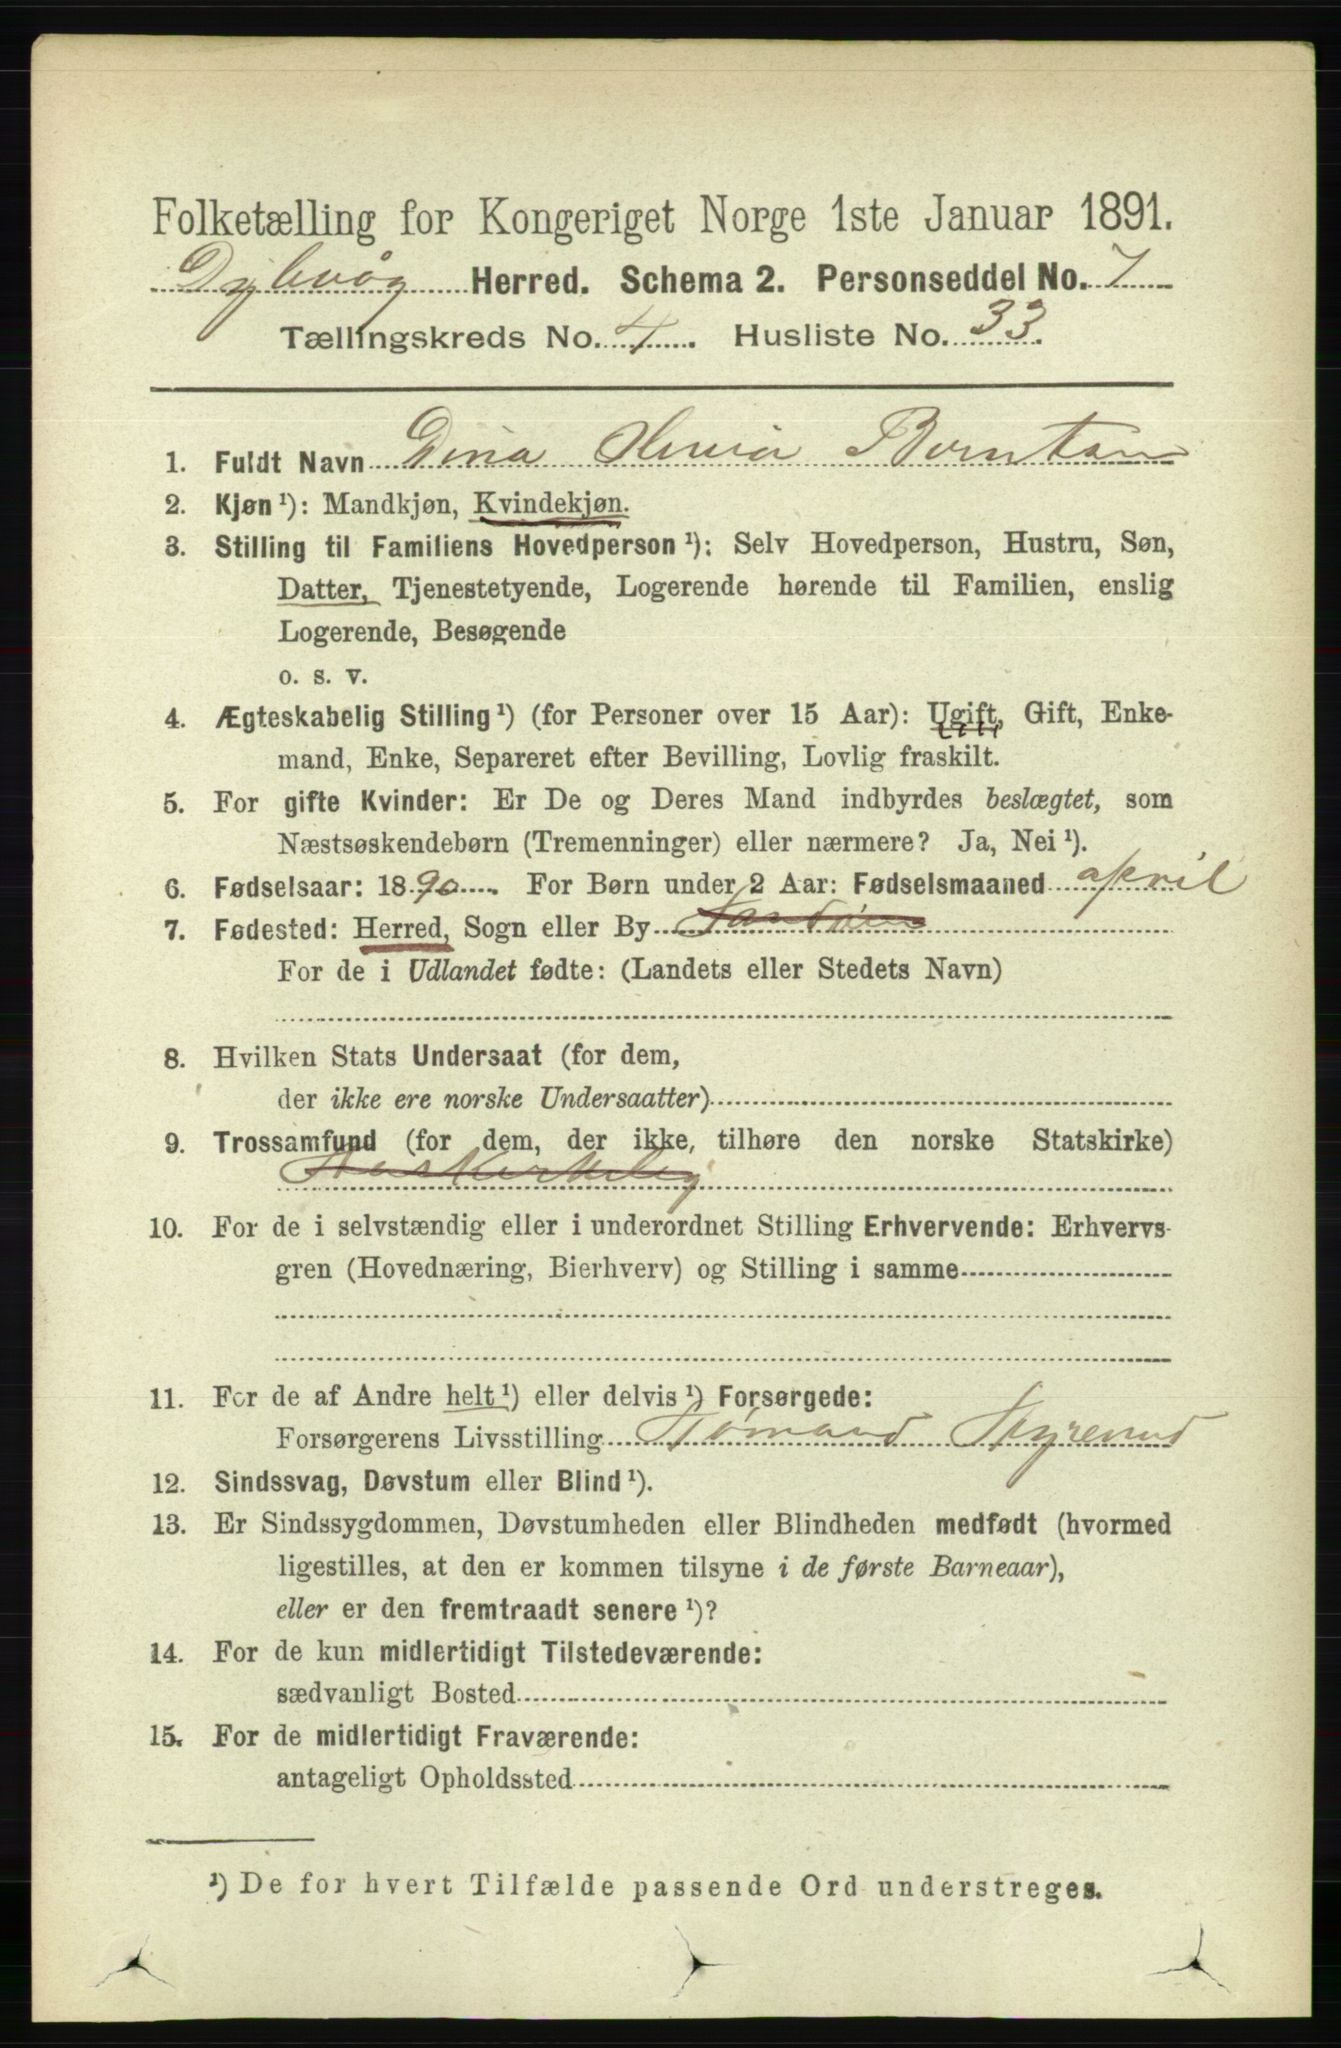 Folketælling for Kongeriget Norge 1ste Januar 1891.
Dybvåg Herred. Schema 2. Personseddel No. 7
Tællingskreds No. 4. Husliste No. 33.
1. Fuldt Navn Dina Berntsen
2. Kjøn ¹): Mandkjøn, Kvindekjøn.
3. Stilling til Familiens Hovedperson ¹): Selv Hovedperson, Hustru, Søn,
Datter, Tjenestetyende, Logerende hørende til Familien, enslig
Logerende, Besøgende
o. s. v.
4. Ægteskabelig Stilling ¹) (for Personer over 15 Aar): Ugift, Gift, Enke-
mand, Enke, Separeret efter Bevilling, Lovlig fraskilt.
5. For gifte Kvinder: Er De og Deres Mand indbyrdes beslægtet, som
Næstsøskendebørn (Tremenninger) eller nærmere? Ja, Nei ¹).
6. Fødselsaar: 1890. For Børn under 2 Aar: Fødselsmaaned april
7. Fødested: Herred, Sogn eller By Sandøen
For de i Udlandet fødte: (Landets eller Stedets Navn)
8. Hvilken Stats Undersaat (for dem,
der ikke ere norske Undersaatter)
9. Trossamfund (for dem, der ikke tilhøre den norske Statskirke)
10. For de i selvstændig eller i underordnet Stilling Erhvervende: Erhvervs-
gren (Hovednæring, Bierhverv) og Stilling i samme
11. For de af Andre helt ¹) eller delvis ¹) Forsørgede:
Forsørgerens Livsstilling Sømand Styrmand
12. Sindssvag, Døvstum eller Blind ¹).
13. Er Sindssygdommen, Døvstumheden eller Blindheden medfødt (hvormed
ligestilles, at den er kommen tilsyne i de første Barneaar),
eller er den fremtraadt senere ¹)?
14. For de kun midlertidigt Tilstedeværende:
sædvanligt Bosted
15. For de midlertidigt Fraværende:
antageligt Opholdssted
¹) De for hvert Tilfælde passende Ord understreges.